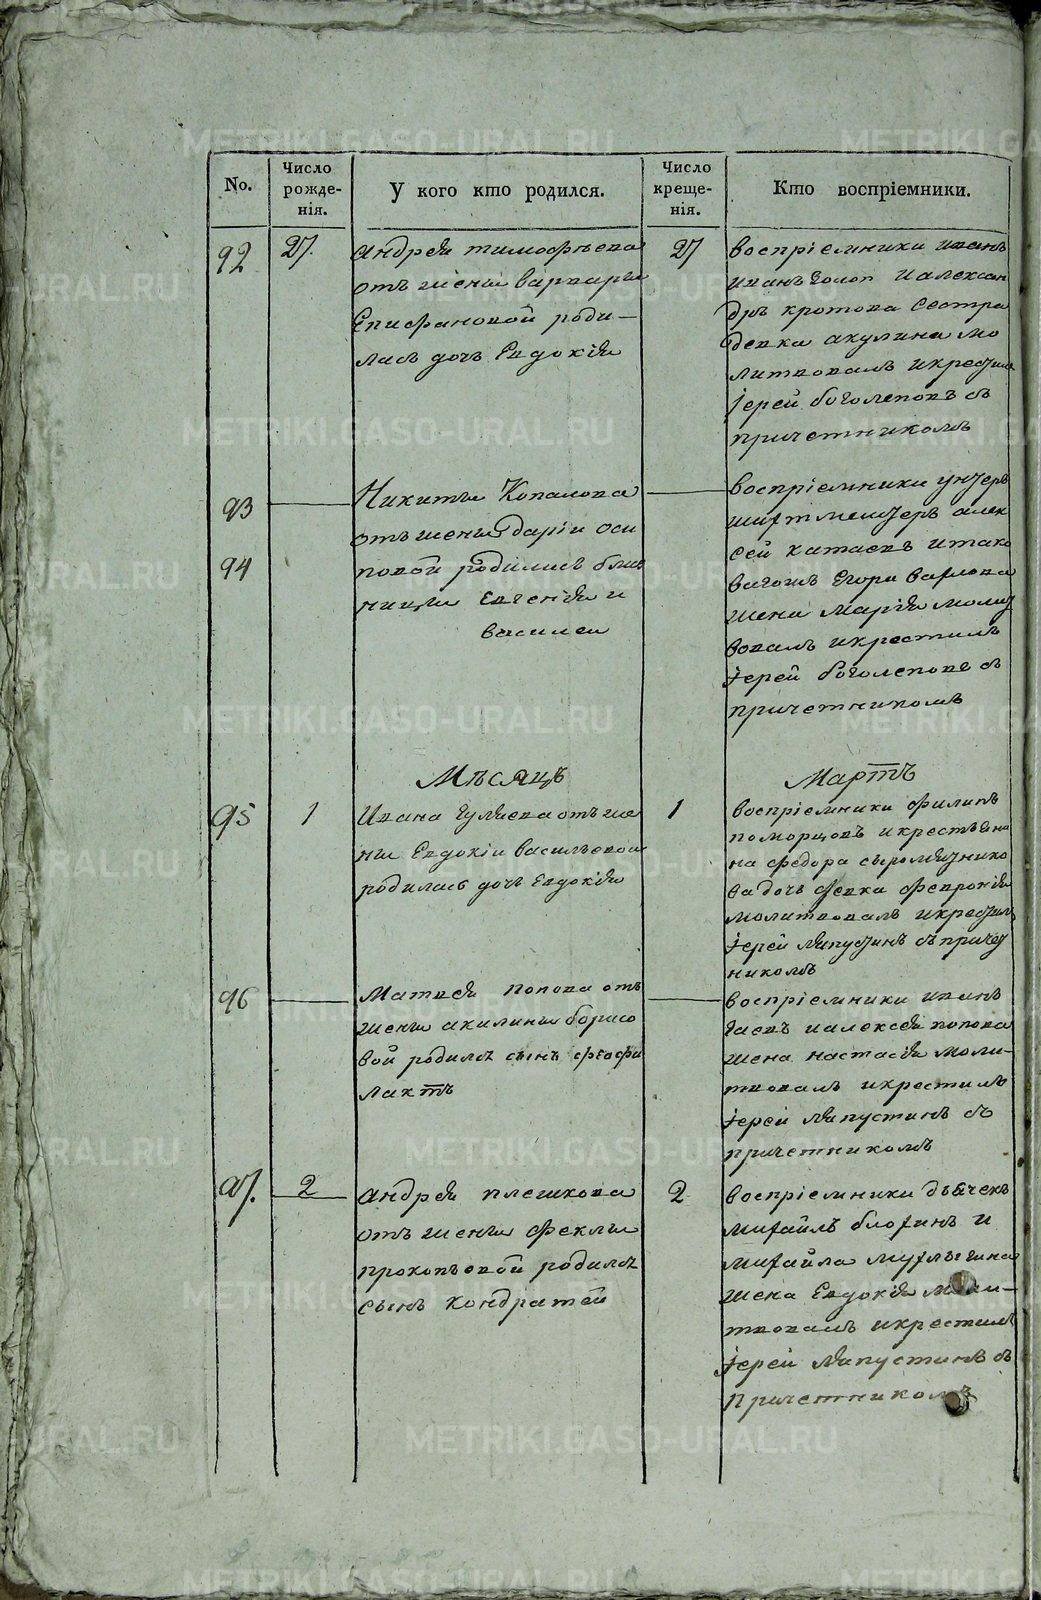 No.
Число рожде-нія.
У кого кто родился.
Число креще-нія.
Кто воспріемники.
92
27.
андрея тимофѣева
отъ жены варвары
Епифановой роди-
лась дочь Евдокія
27
воспріемники иванъ
иванъ
и алексан
дръ кротова сестра
девка акулина мо
литвовалъ и крестилъ
іерей боголеповъ съ
причетникомъ
93
94
Никиты Копалова
отъ жены даріи оси
повой родились близ
ницы Евгенія и
василеи
воспріемники унтеръ
шихтмейстеръ алек
сей катаевъ и тако
вагожъ Егора
жена марія молит
вовалъ и крестилъ
іерей боголеповъ съ
причетникомъ
Мѣсяцъ
Мартъ
95
1
Ивана Гуляева отъ же
ны Евдокіи васильевой
родилась дочь Евдокія
1
воспріемники филипъ
поморцовъ и крестьяни
на федора сыромятнико
ва дочь девка февронія
молитвовалъ и крестилъ
іерей ляпустинъ съ причет
никомъ
96
Матвея попова отъ
жены акилины борисо
вой родился сынъ феофи
лактъ
воспріемники иванъ
и алексея попова
жена настасія моли-
твовалъ и крестилъ
іерей ляпустинъ съ
причетникомъ
97.
2
андрея плешкова
отъ жены феклы
прокопьевой родился
сынъ кондратей
2
воспріемники дьячекъ
михайлъ блохинъ и
михайла
жена Евдокія моли-
твовалъ и крестилъ
іерей ляпустинъ съ
причетникомъ
METRIKI.GASO-URAL.RU